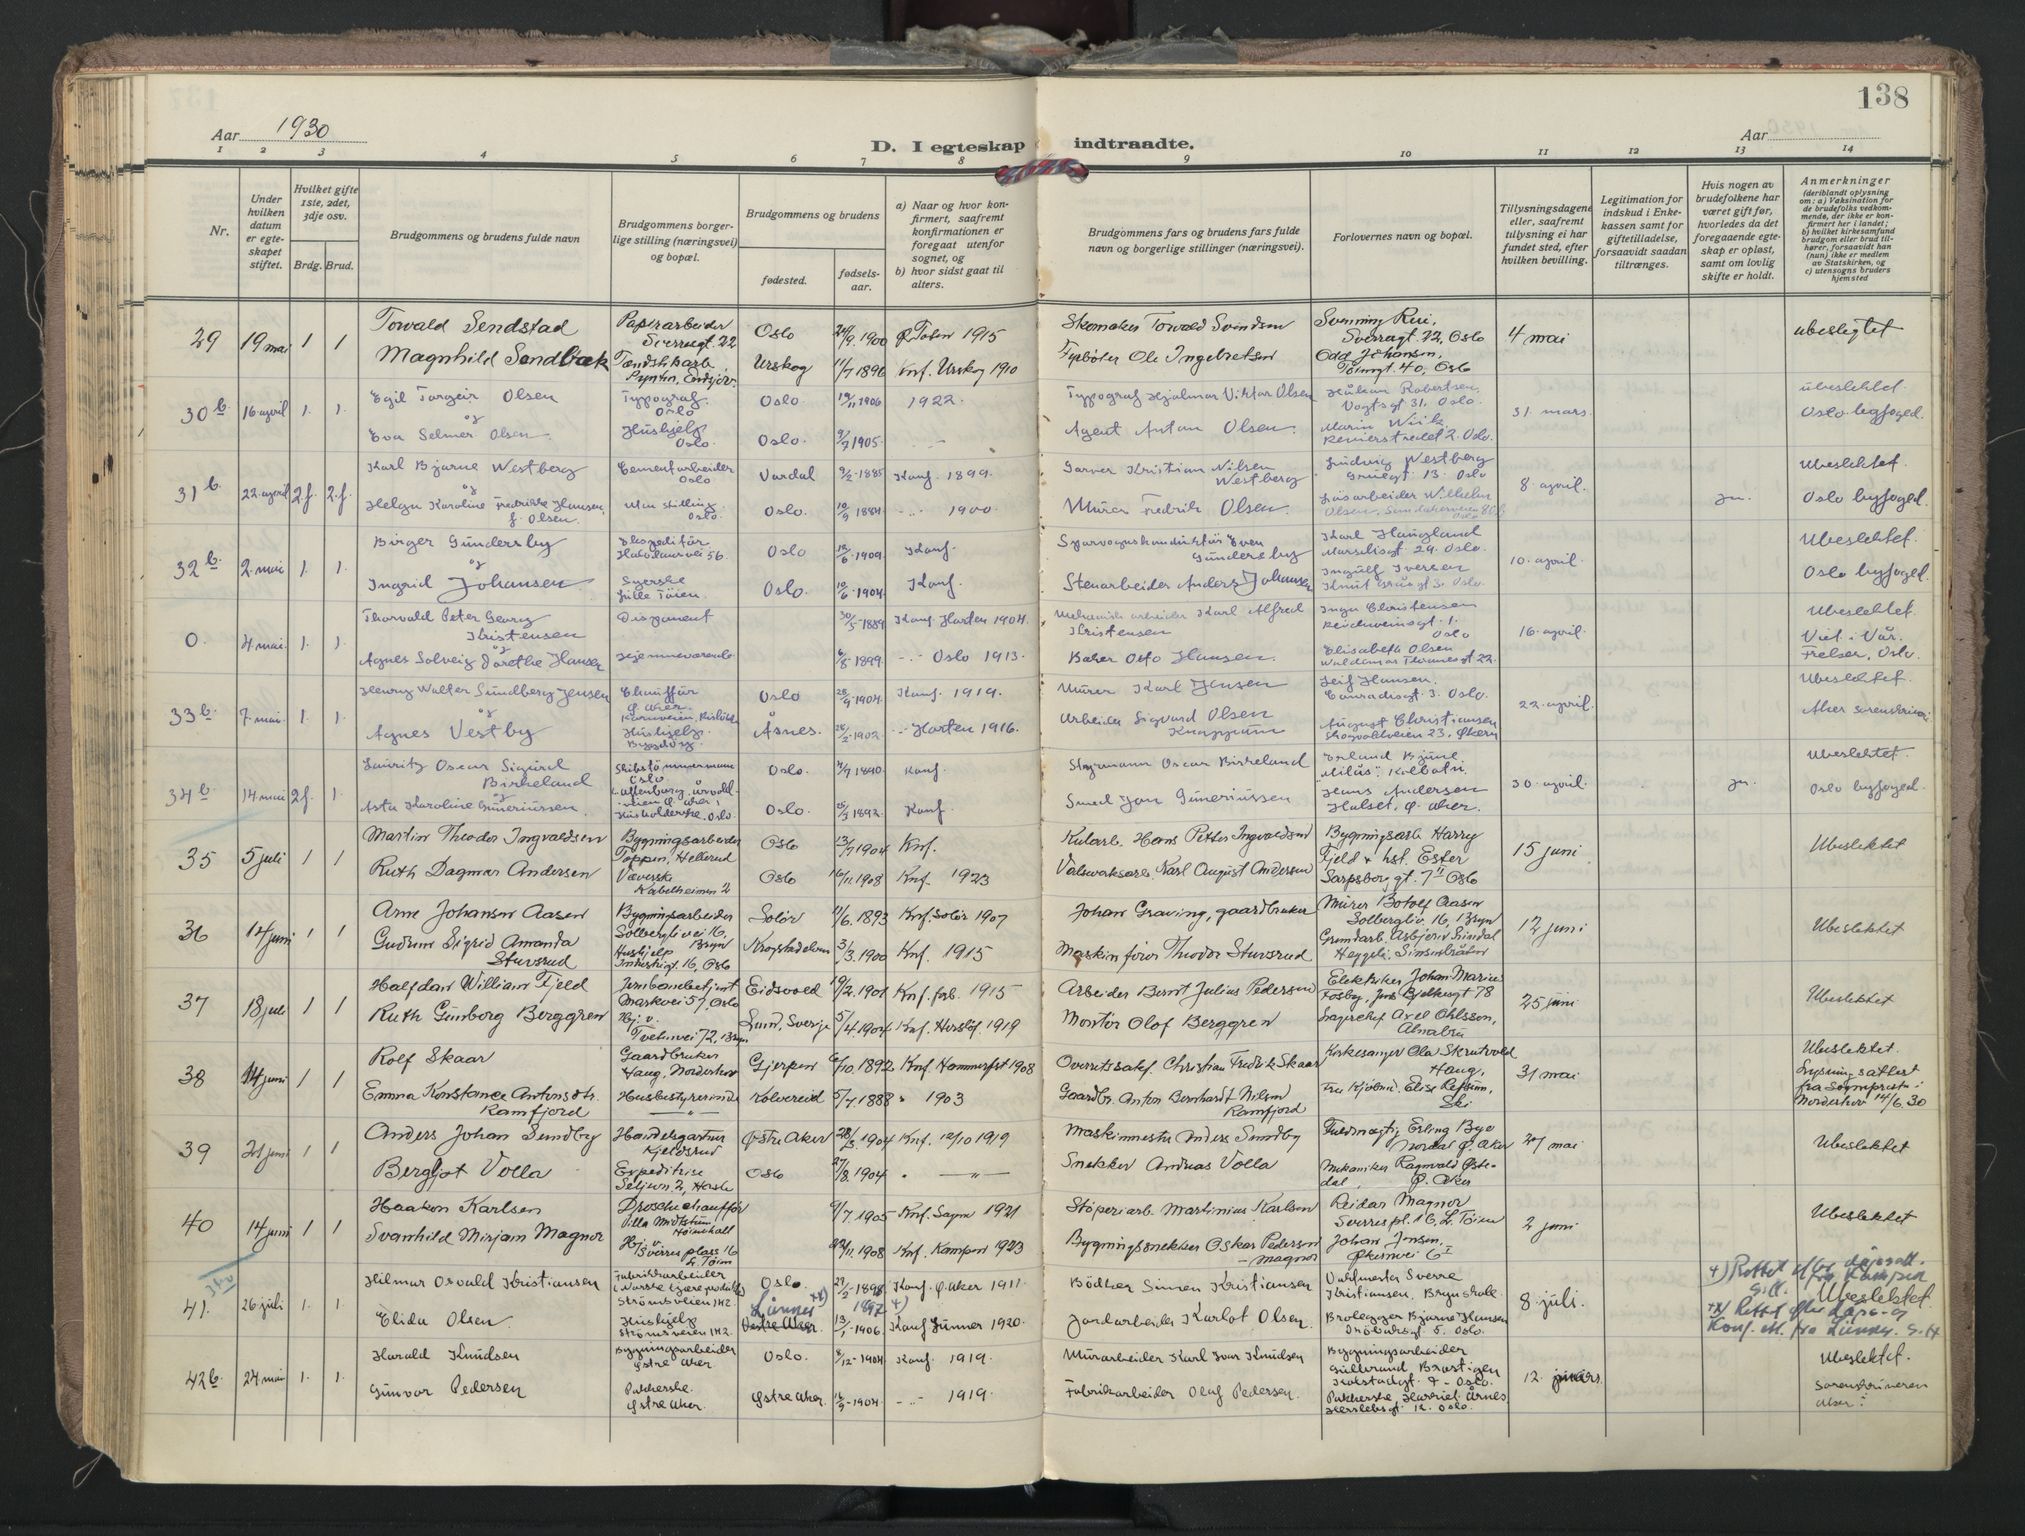 138
Aar 1930
D. I egteskap indtraadte.
Aar
1 2 3 4 5 6 7 8 9 10 11 12 13 14
Nr.
Under hvilken datum er egteskapet stiftet.
Hvilket gifte 1ste, 2det, 3dje osv.
Brdg. Brud.
Brudgommens og brudens fulde navn
Brudgommens borgerlige stilling (næringsvei) og bopæl.
Brudgommens og brudens
fødested.
fødselsaar.
a) Naar og hvor konfirmert, saafremt konfirmationen er foregaat utenfor sognet, og
b) hvor sidst gaat til alters.
Brudgommens fars og brudens fars fulde navn og borgerlige stillinger (næringsvei).
Forlovernes navn og bopæl.
Tillysningsdagene eller, saafremt tillysning ei har fundet sted, efter hvilken bevilling.
Legitimation for indskud i Enkekassen samt for giftetilladelse, forsaavidt saadan tiltrænges.
Hvis nogen av brudefolkene har været gift før, hvorledes da det foregaaende egteskap er opløst, samt om lovlig skifte er holdt.
Anmerkninger
(deriblandt oplysning om: a) Vaksination for de brudefolks vedkommende, der ikke er konfirmert her i landet; b) hvilket kirkesamfund brudgom eller brud tilhører, forsaavidt han (hun) ikke er medlem av Statskirken, og c) utensogns bruders hjemsted
29 19 mai 1 1 Torvald Sendstad Papirarbeider Sverresgt. 22 Oslo 24/9.1900 Ø. Toten 1915 Skomaker Torvald Svendsen Svenning Rui, Sverresgt. 22, Oslo 4 mai ubeslegtet
Magnhild Sandbæk Urskog 11/7 1896 Knf. Urskog 1910 Fyrbøter Ole Ingebretsen Odd Johansen, Tøiengt. 40, Oslo
30 b. 16 april 1. 1. Egil Torgeir Olsen Typograf. Oslo Oslo. 19/11 1906 1922. Typograf Hjalmar Viktor Olsen Håkon Robertsen, Vogtsgt 31. Oslo. 31 mars. ubeslektet.
og Oslo byfoged.
Eva Selmer Olsen. Hushjelp Oslo. Oslo. 9/7 1905. Agent Anton Olsen. Marin Wiik Reinierstredet 2. Oslo.
31 b. 22. april 2.f. 2.f. Karl Bjarne Westberg Cementarbeider Oslo Vardal 9/2-1885 Konf. 1899. Garver Kristian Nilsen Westberg Ludvig Westberg 13. Oslo 8. april. ja. Ubeslektet.
og Oslo byfoged.
Helga Karoline Fredrikke Hansen f. Olsen. Uten stilling Oslo. Oslo. 10/9 1884 1900. Murer Fredrik Olsen. Løsarbeider Wilhelm Olsen,
32 b. 2. mai 1. 1. Birger Gundersby Ekspeditør 56. Oslo 12/6 1909. Konf. Sporvognskonduktør Even Gundersby Karl Haugland 29. Oslo. 10. april. Ubeslektet.
og Oslo byfoged.
Ingrid Johansen Syerske Lille Tøien. Oslo. 10/6 1904. Konf. Stenarbeider Anders Johansen Ingulf Iversen 3. Oslo.
0. 4 mai 1. 1. Thorvald Peter Georg Kristensen Disponent 30/5-1889 Konf. Horten 1904. Mekanisk arbeider Karl Alfred Kristensen Inga Christensen 1. Oslo 16. april. Ubeslektet
og Viet i Vår Frelser, Oslo.
Agnes Solveig Dorethe Hansen Hjemmeværende 6/8 1899. Oslo 1913. Baker Otto Hansen. Elisabeth Olsen Waldemar Thranesgt 22.
33 b. 7. mai. 1. 1. Henry Walter Sundberg Jensen Chauffør Ø. Aker. Oslo 28/9-1904. Konf. 1919. Murer Karl Jensen Leif Hansen. 3. Oslo. 22. april. Ubeslektet.
og Aker sorenskriveri
Agnes Vestby Hushjelp. Bygdøy. Åsnes. 26/2-1902. Horten 1916. Arbeider Sigvard Olsen August Christiansen 23. Økern
34 b. 14 mai 2f. 1. Lauritz Oscar Sigurd Birkeland Skibstømmermann Oslo Oslo. 7/7 1890 Konf. Styrmann Oscar Birkeland Erland Bjune "Milås". Kolbotn. 30. april. ja. Ubeslektet.
og Oslo byfoged.
Asta Karoline Guneriussen. Husholderske. Oslo Oslo. 25/3 1892. Konf. Smed Jon Guneriussen Hans Andersen Halset, Ø. Aker.
35 5 juli 1 1 Martin Theodor Ingvaldsen Bygningsarbeider Toppen, Hellerud Oslo 13/7 1904 Knf. Hans Petter Ingvaldsen Bygningsarb. Harry Fjeld & hst. Ester 15 juni Ubeslektet
Ruth Dagmar Andersen Væverske Kabelheimen 2 Oslo 16/11.1908 Knf. 1923 Karl August Andersen Sarpsborggt. 7 II Oslo
36 14 juni 1 1 Arne Johansen Aasen Bygningsarbeider Solbergliveien 16, Bryn Solør 11/6.1893 Knf. Solør 1907 Johan Graving, gaardbruker Murer Botolf Aasen Solbergliv 16, Bryn 12 juni Ubeslektet
Gudrun Sigrid Amanda Stuvsrud Hushjelp 16, Oslo Krogstadelven 3/3.1900 Knf. 1915 Maskinfører Theodor Stuvsrud Grundarb. Asbjørn Sindal
37 18 juli 1 1 Halfdan William Fjeld Jernbanebetjent Markvei 57, Oslo Eidsvold 19/2.1901 Knf. forb. 1915 Arbeider Bernt Julius Pedersen Elektriker Johan Marius Fosby, 78 25 juni Ubeslektet
Ruth Gunborg Berggren Hj. v. Tvetenvei 72, Bryn Lund, Sverige 5/4.1904 Knf. 1919 Montør Olof Berggren Lagerchef Axel Ohlsson, Alnabru
38 14 juni 1 1 Rolf Skaar Gaardbruker Haug, Norderhov Gjerpen 6/10.1892 Knf. Hammerfest 1908 Overretssakf. Christian Fredrik Skaar Kirkesanger Ola Skrutvold Haug, 31 mai Ubeslektet.
Emma Konstance Antonsdtr. Ramfjord Husbestyrerinde Kolvereid 5/7.1888 " 1903 Gaardbr. Anton Bernhardt Nilsen Ramfjord Elise Refsum, Ski Lysningsattest fra Sogneprest i Norderhov 14/6.30
39 21 juni 1 1 Anders Johan Sundby Handelsgartner Kjeldsrud Østre Aker 28/5.1904 Knf. 12/10 1919 Maskinmester Anders Sundby Fuldmægtig Erling Bye Ø. Aker 27 mai Ubeslektet
Bergljot Volla Expeditrise Oslo 27/8.1904 " Snekker Andreas Volla Mekaniker Ragnvald Østedal, Ø. Aker
40 14 juni 1 1 Haakon Karlsen Droschechauffør Villa Midtstuen Høienhall 9/7.1905 Knf. Sagn 1921 Støperiarb. Martinius Karlsen Reidar Magnor Sverrespl. 16, L. Tøien 2 juni Ubeslektet
Svanhild Mirjam Magnor Hj. v. Sverres plass 16 L. Tøien 22/11.1908 Knf. Kampen 1923 Bygningssnekker Oskar Pedersen Magnor Johan Jensen, Økernvei 6 I
41. 26 juli 1. 1. Hilmar Osvald Kristiansen Fabrikkarbeider Strømsveien 142 Oslo. 27/2-1898 1897 +) Konf. Ø. Aker 1911. Bødker Simen Kristiansen Valsmester Sverre Kristiansen, Bryn skole. 8 juli. +) Rettet efter dåpsatt. fra Kampen S.H. Ubeslektet.
Elida Olsen. Hushjelp Strømsveien 142. Lunner ++) Vestre Aker. 13/1-1906. Konf. Lunner 1920. Jordarbeider Karlot Olsen. Brolegger Bjarne Hansen 5. Oslo. ++) Rettet efter Dåps- og Konf. att. fra Lunner. S.H
42 b. 24 mai 1. 1. Harald Knudsen Bygningsarbeider Østre Aker Oslo. 8/12-1904 Konf. 1919. Murarbeider Karl Ivar Knudsen Bygningsarbeider Gulbrand Bratigen - Oslo. 12. mars. Ubeslektet.
Gunvor Pedersen Pakkerske. Østre Aker. Østre Aker. 16/9-1904 1919. Fabrikarbeider Olaf Pedersen. Pakkerske Harriet Årnes Herslebsgt. 12. Oslo. Sorenskriveren Aker